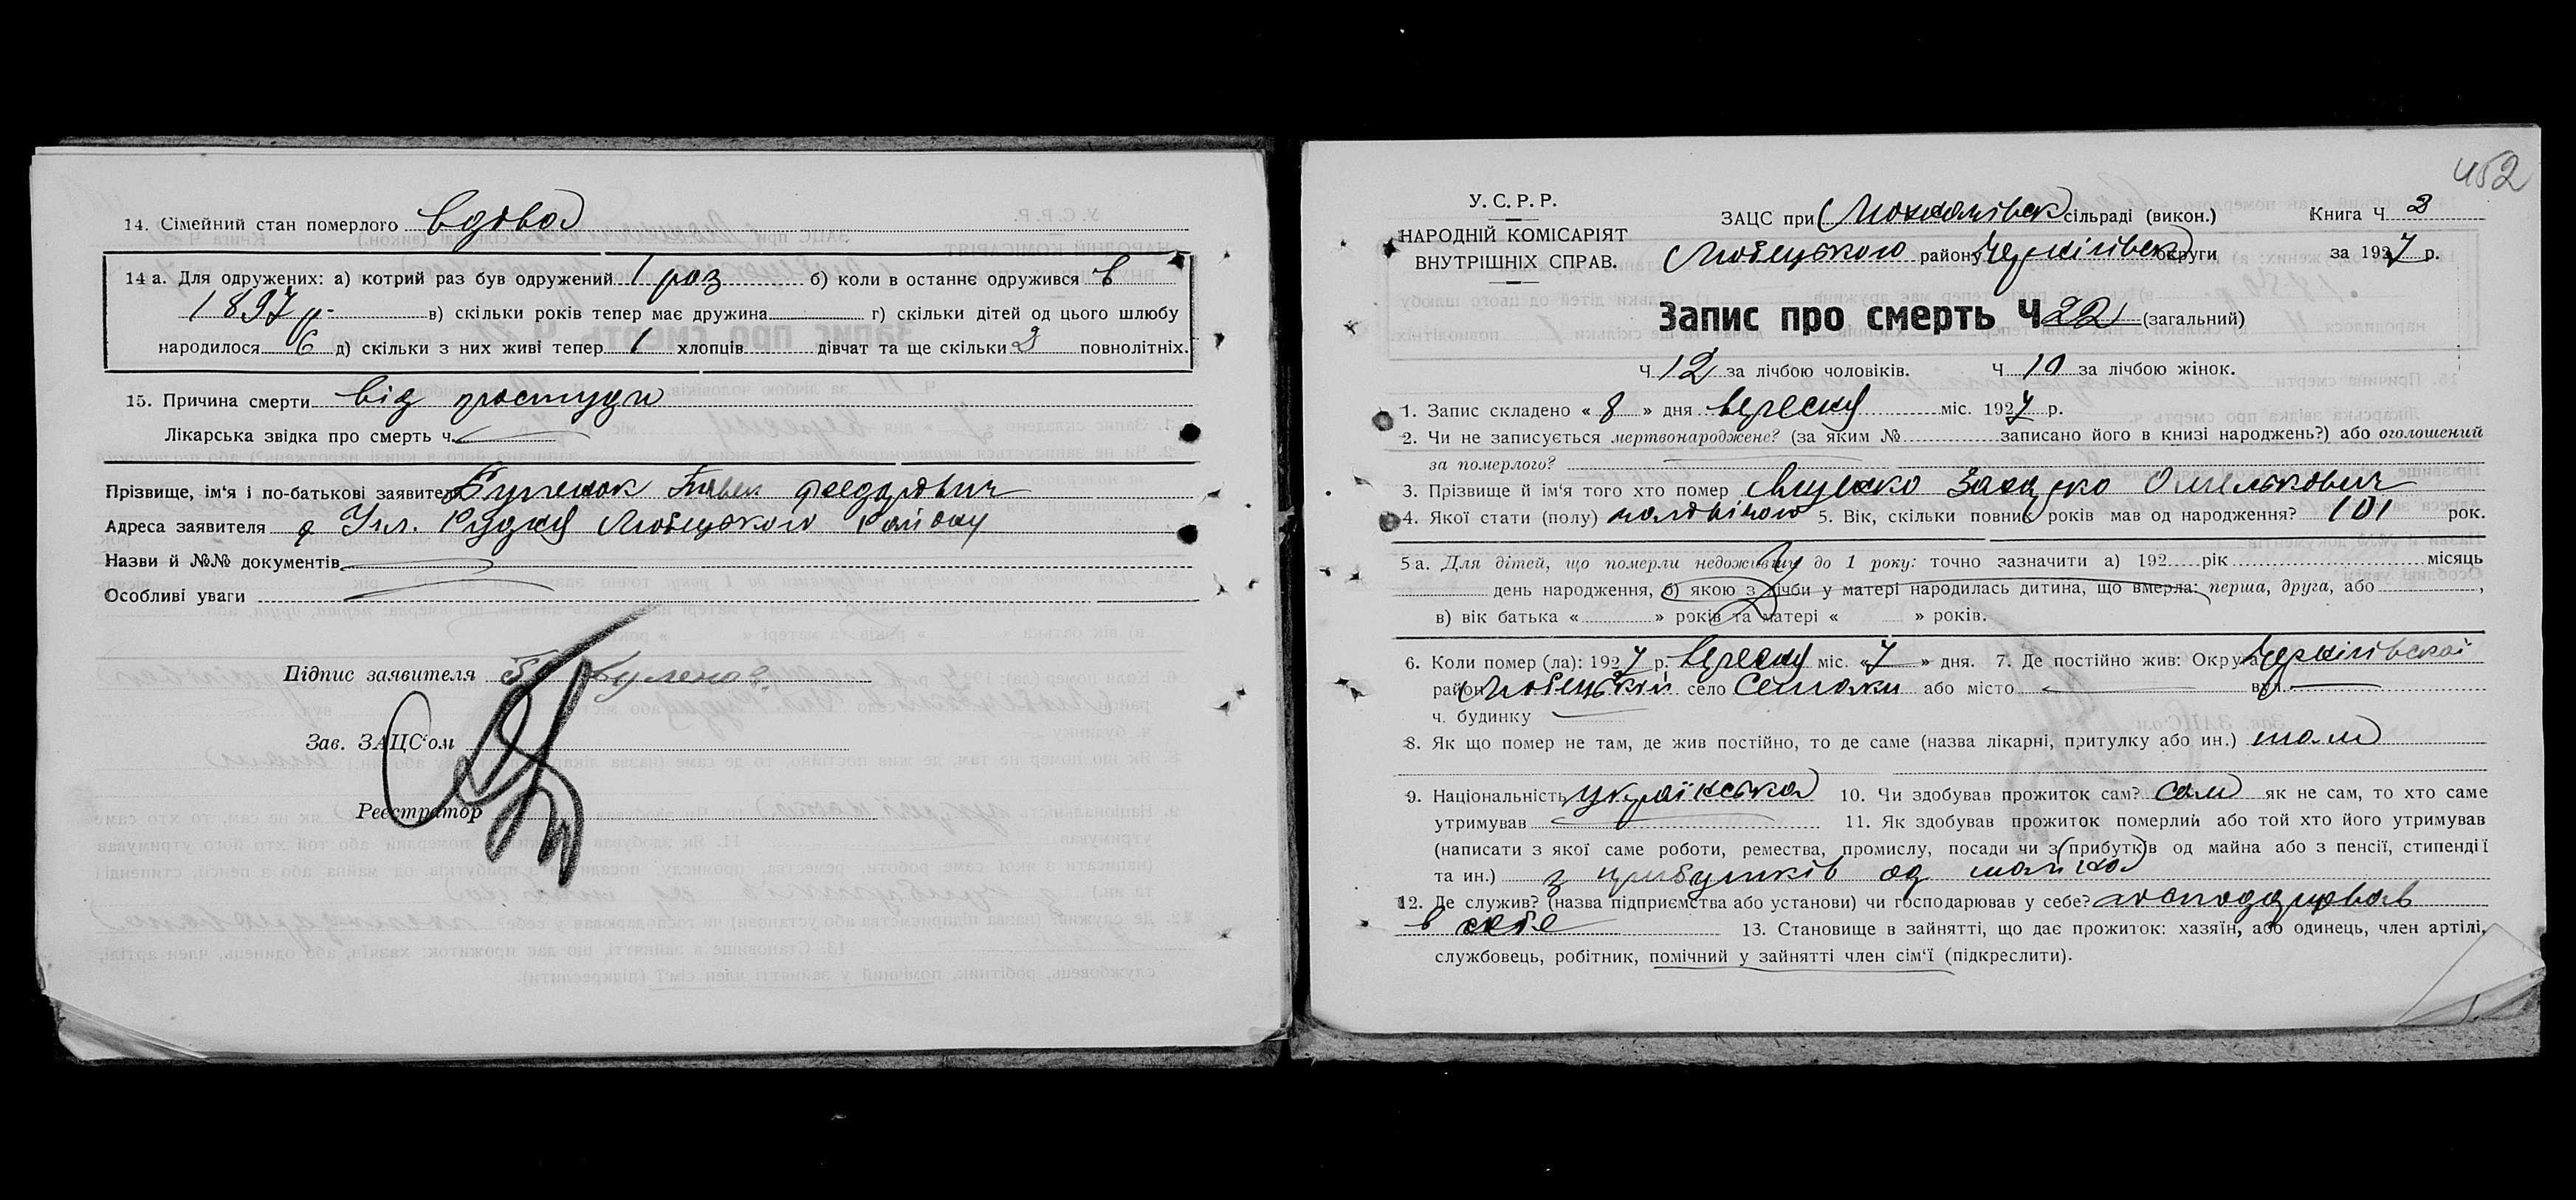 14. Сімейний стан померлого вдова
14 а. Для одружених: а) котрий раз був одружений 1 раз б) коли в останнє одружився в
1897 р. в) скільки років тепер має дружина г) скільки дітей од цього шлюбу
народилося 6 д) скільки з них живі тепер 1 хлопців дівчат та ще скільки 2 повнолітніх.
15. Причина смерти від простуди
Лікарська звідка про смерть ч.
Прізвище, ім'я і по-батькові заявителя Павел Федорович
Адреса заявителя Рудня Любецького району
Назви й №№ документів
Особливі уваги
Підпис заявителя
Зав. ЗАЦС'ом
Реєстратор
452
У. С. Р. Р.
НАРОДНІЙ КОМІСАРІЯТ
ВНУТРІШНІХ СПРАВ.
ЗАЦС при сільраді (викон.) Книга Ч 3
Любецького району Чернігівск округи за 1927 р.
Запис про смерть Ч 22 (загальний)
Ч 12 за лічбою чоловіків. Ч 10 за лічбою жінок.
1. Запис складено « 8 » дня вересня міс. 1927 р.
2. Чи не записується мертвонароджене? (за яким № записано його в книзі народжень?) або оголошений
за померлого?
3. Прізвище й ім'я того хто помер Омелькович
4. Якої стати (полу) 5. Вік, скільки повних років мав од народження? 101 рок.
5 а. Для дітей, що померли недоживши до 1 року: точно зазначити а) 192 рік місяць
день народження, б) якою з лічби у матері народилась дитина, що вмерла: перша, друга, або ,
в) вік батька « » років та матері « » років.
6. Коли помер (ла): 1927 р. вересня міс. «7» дня. 7. Де постійно жив: Округа Чернігівскої
район Любецький село або місто вул.
ч. будинку
8. Як що помер не там, де жив постійно, то де саме (назва лікарні, притулку або ин.) там
9. Національність українська 10. Чи здобував прожиток сам? сам як не сам, то хто саме
утримував 11. Як здобував прожиток померлий або той хто його утримував
(написати з якої саме роботи, ремества, промислу, посади чи з прибутків од майна або з пенсії, стипендії
та ин.) з прибутків од майна
12. Де служив? (назва підприємства або установи) чи господарював у себе? господарював
в себе 13. Становище в зайнятті, що дає прожиток: хазяїн, або одинець, член артілі,
службовець, робітник, помічний у зайнятті член сім'ї (підкреслити).